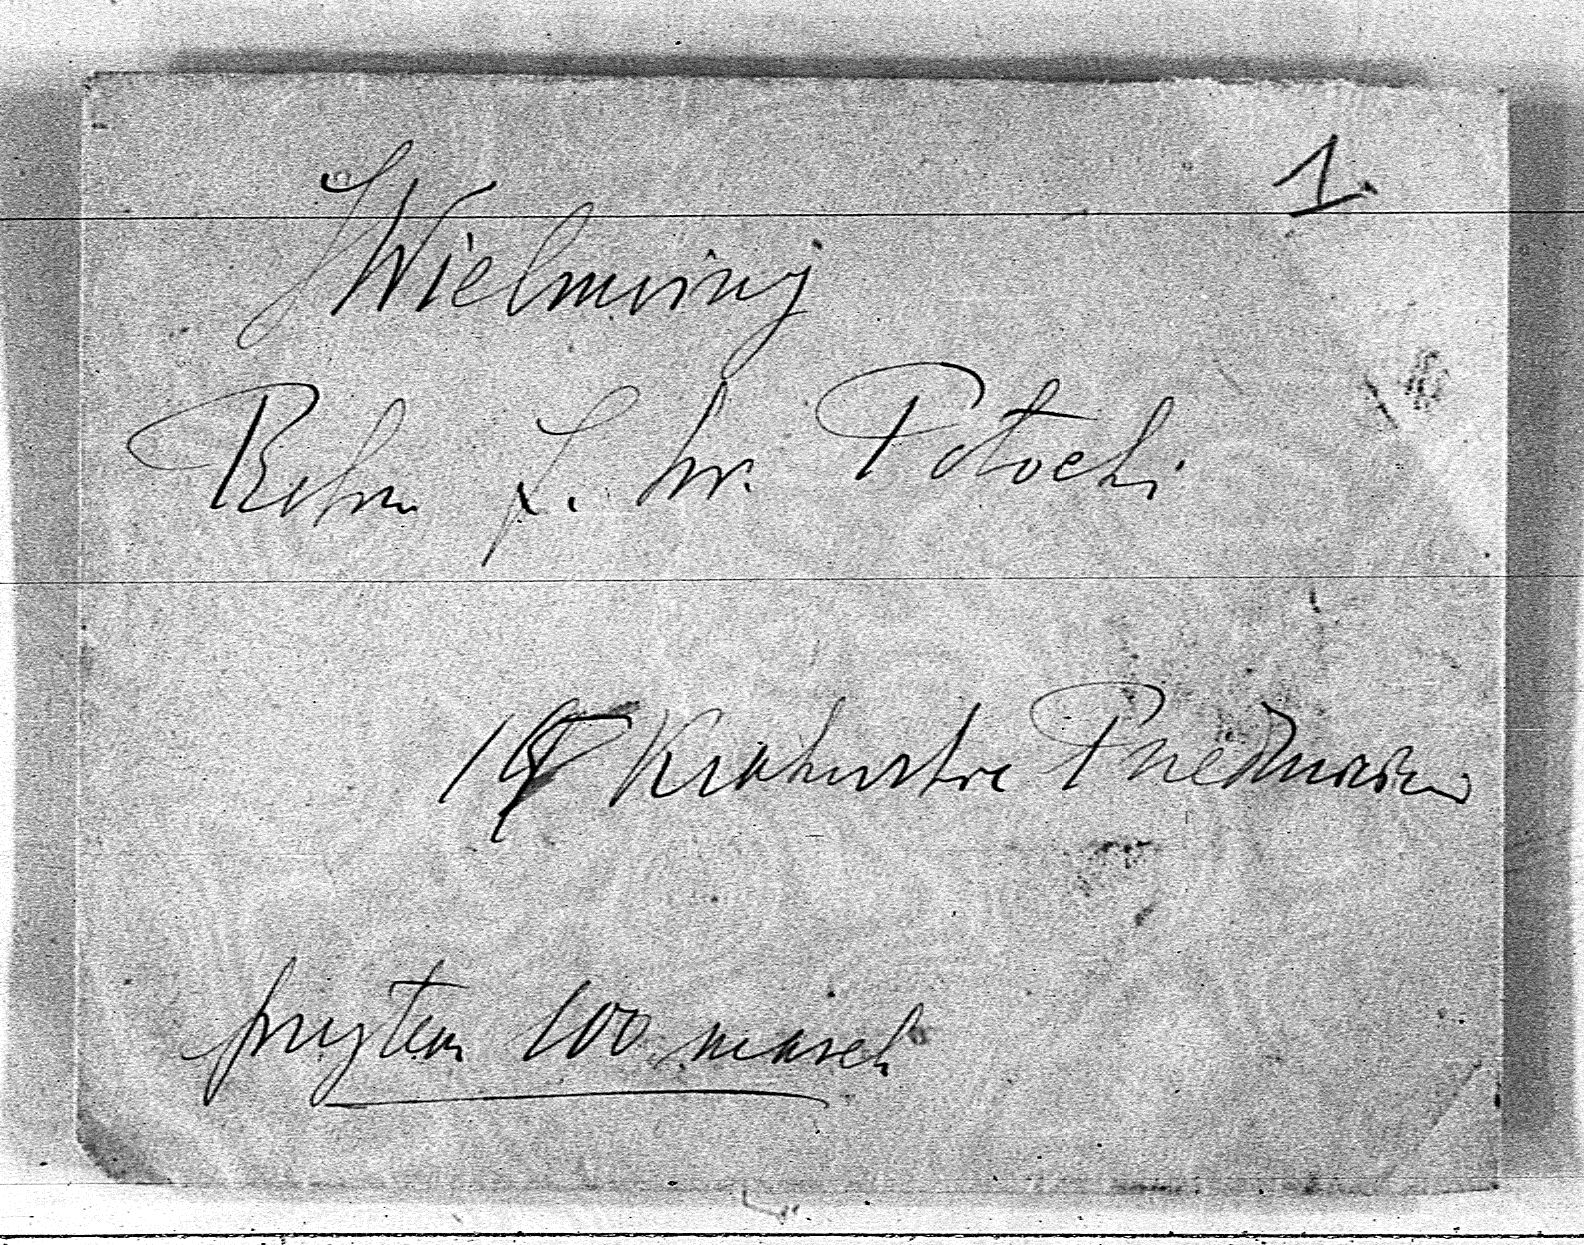 1.
Wielmożny
J. hr. Potocki
Krakowskie Przedmieście
przytem 100 marek